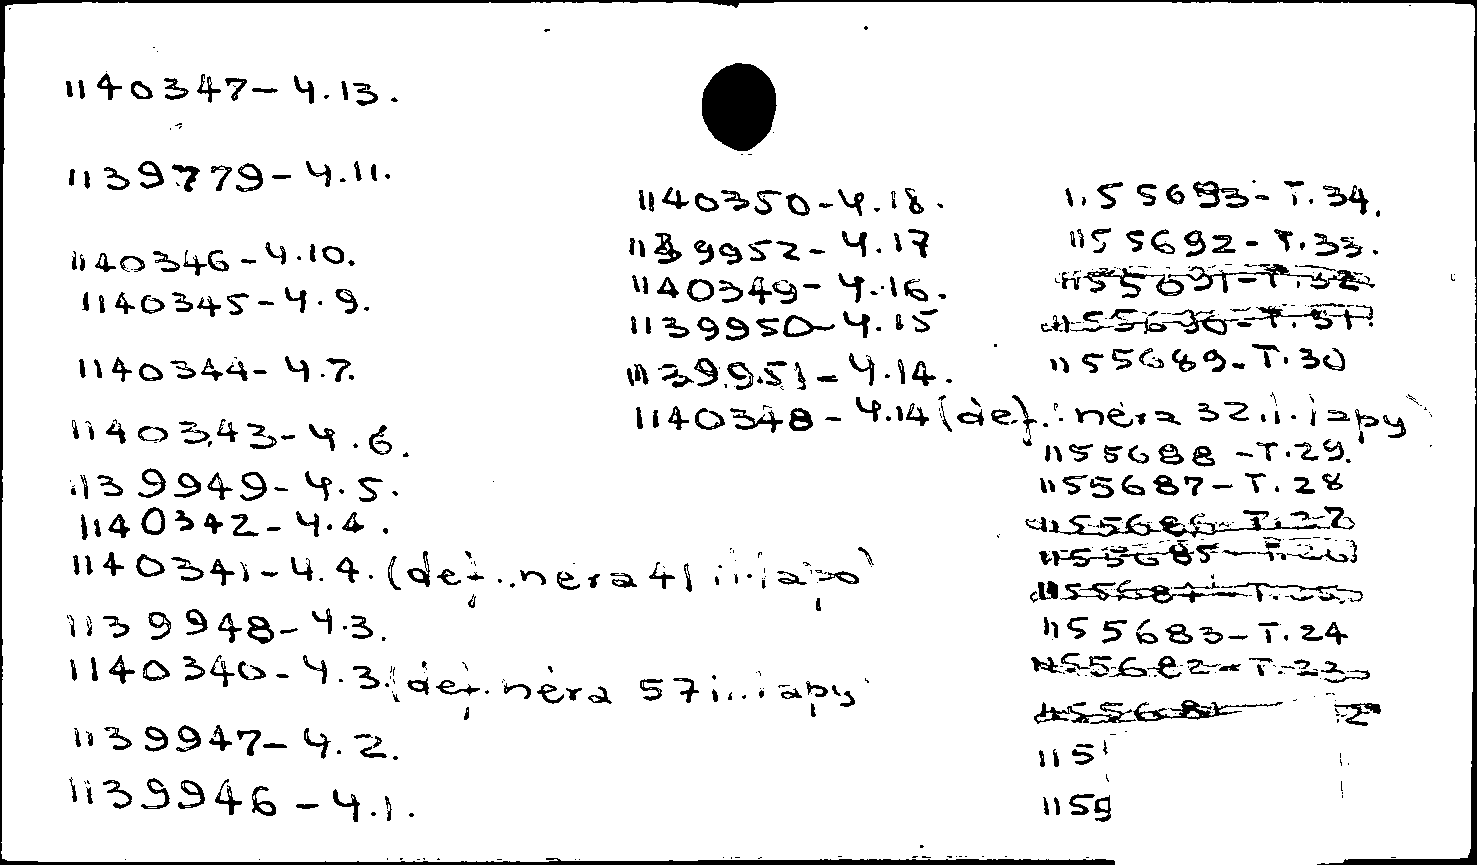 1140347-Ч.13.
1139779-Ч.11.
1140346-Ч.10.
1140345-Ч.9.
1140344-Ч.7.
1140343-Ч.6.
1139949-Ч.5.
1140342-Ч.4.
1140341-Ч.4. (def. nėra 41
1139948-Ч.3.
1140340-Ч.3. (def. nėra 57
1139947-Ч.2.
1139946-Ч.1.
1140350-Ч.18.
1139952-Ч.17
1140349-Ч.16.
1139950-Ч.15
1139951-Ч.14.
1140348-Ч.14 (def. nėra 32
1155693-T.34.
1155692-T.33.
1155691-T.32.
1155690-T.31.
1155689-T.30
1155688-T.29.
1155687-T.28
1155686-T.27
1155685-T.26
1155684-T.25
1155683-T.24
1155682-T.23
1155681
115
1159